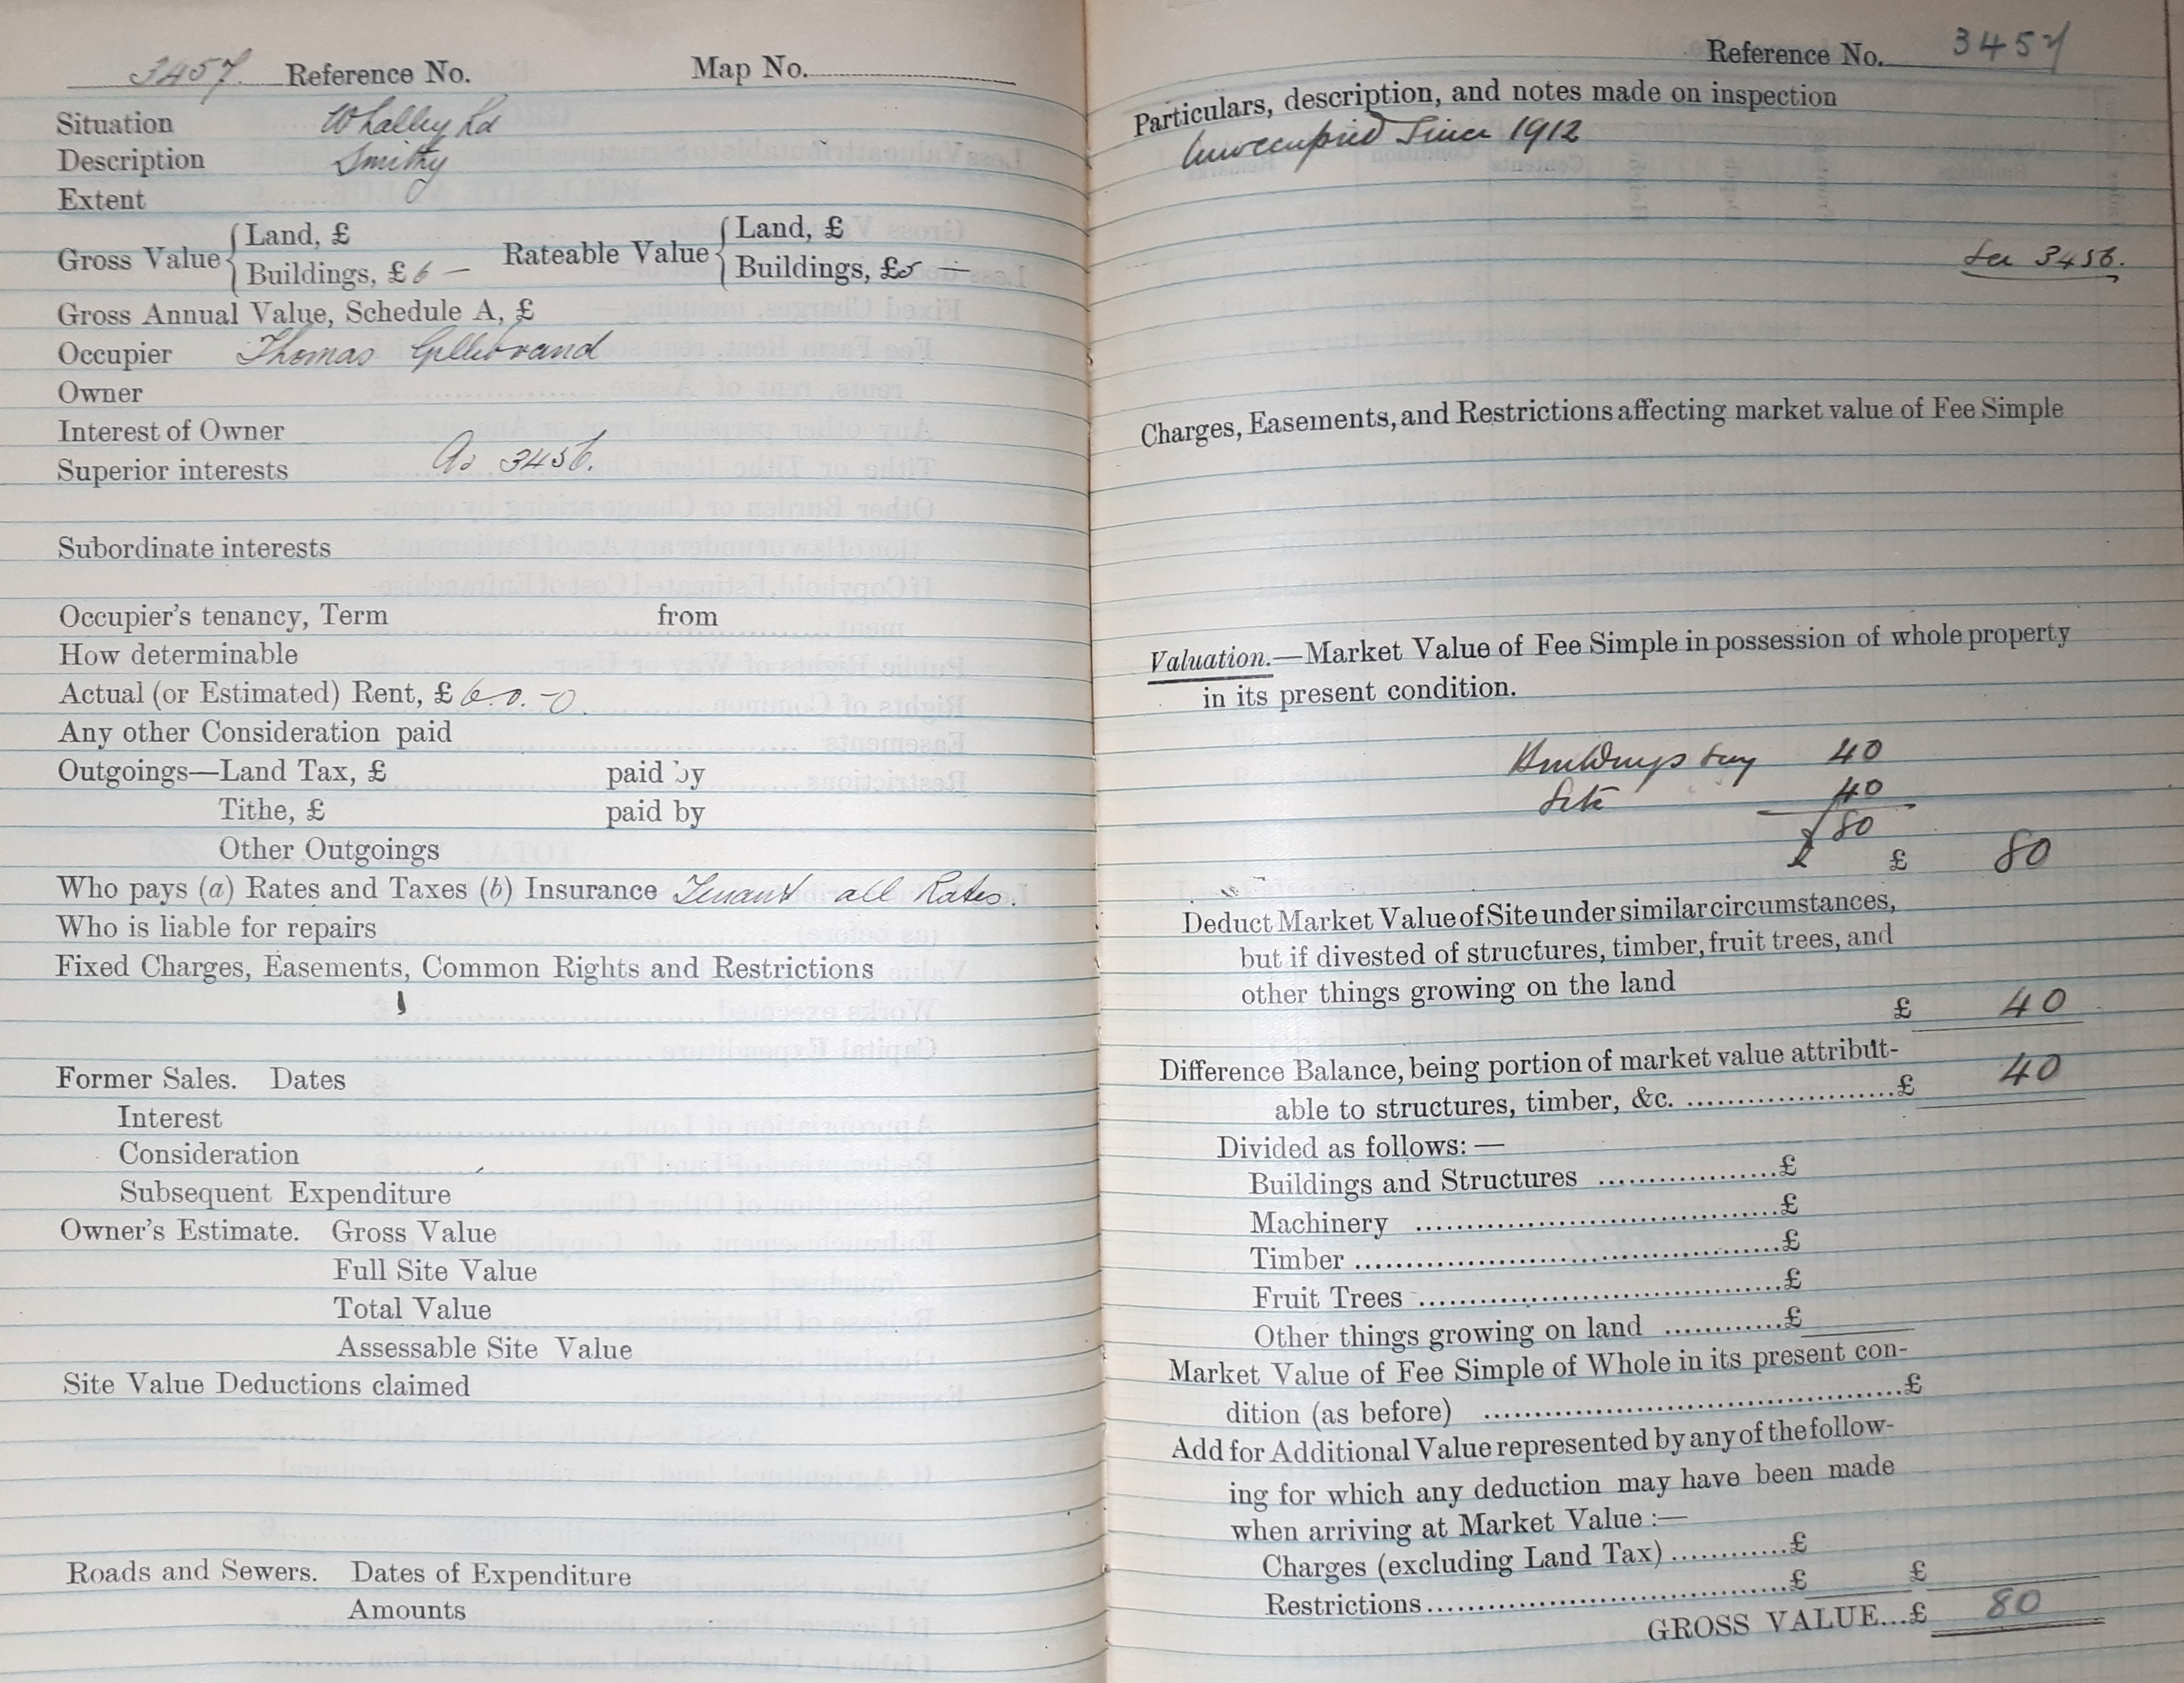 3457 Reference No. Map No.
Situation Whalley Rd
Description Smithy
Extent
Gross Value { Land, £ Rateable Value { Land, £
Buildings, £ 6 — Buildings, £5 —
Gross Annual Value, Schedule A, £
Occupier Thomas Gillibrand
Owner
Interest of Owner
Superior interests As 3456.
Subordinate interests
Occupier's tenancy, Term from
How determinable
Actual (or Estimated) Rent, £ 6.0.-0
Any other Consideration paid
Outgoings—Land Tax, £ paid by
Tithe, £ paid by
Other Outgoings
Who pays (a) Rates and Taxes (b) Insurance Tenant all Rates.
Who is liable for repairs
Fixed Charges, Easements, Common Rights and Restrictions
Former Sales. Dates
Interest
Consideration
Subsequent Expenditure
Owner's Estimate. Gross Value
Full Site Value
Total Value
Assessable Site Value
Site Value Deductions claimed
Roads and Sewers. Dates of Expenditure
Amounts
Reference No. 3457
Particulars, description, and notes made on inspection
Unoccupied Since 1912
See 3456.
Charges, Easements, and Restrictions affecting market value of Fee Simple
Valuation.—Market Value of Fee Simple in possession of whole property
in its present condition.
Buildings say 40
Site 40
£ 80
£ 80
Deduct Market Value of Site under similar circumstances,
but if divested of structures, timber, fruit trees, and
other things growing on the land
£ 40
Difference Balance, being portion of market value attribut-
able to structures, timber, &c. ....................£ 40
Divided as follows:—
Buildings and Structures ..................£
Machinery ....................................£
Timber ...........................................£
Fruit Trees ....................................£
Other things growing on land ............£
Market Value of Fee Simple of Whole in its present con-
dition (as before) ..........................................£
Add for Additional Value represented by any of the follow-
ing for which any deduction may have been made
when arriving at Market Value :—
Charges (excluding Land Tax) ............£
Restrictions ....................................£ £
GROSS VALUE...£ 80